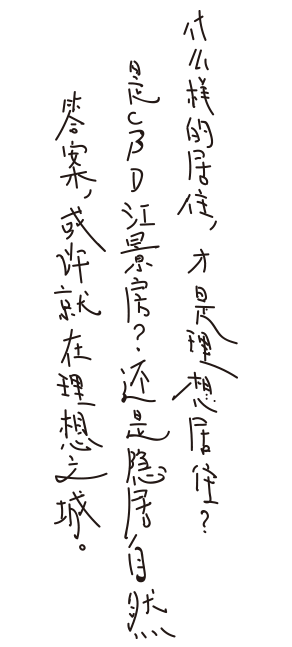 什么样的居住，才是理想居住？
是CBD江景房？还是隐居自然
答案，或许就在理想之城。